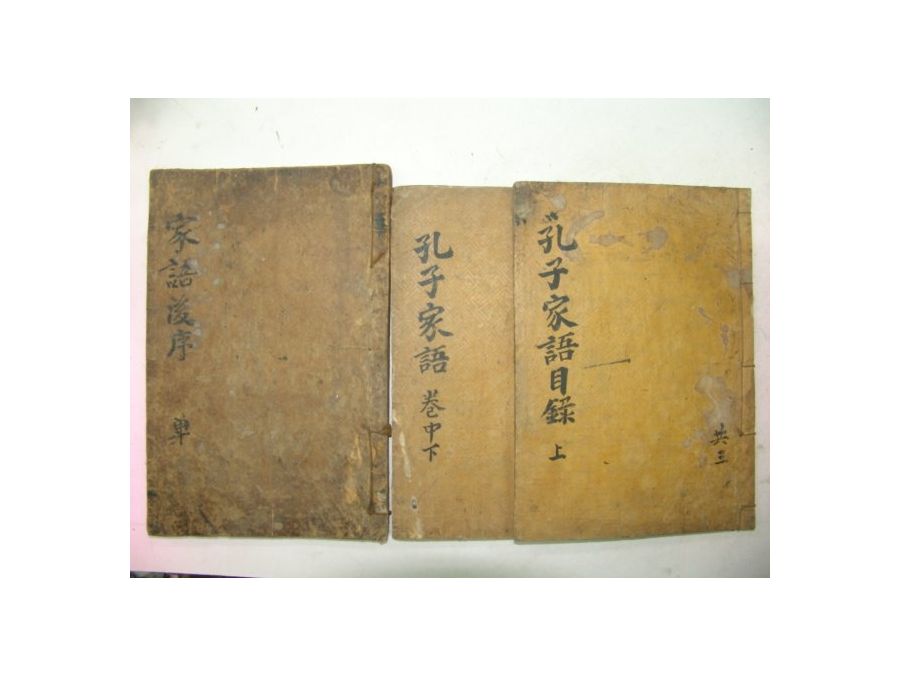 孔子家語目錄 上
共三
孔子家語 巻中下
家語後序 單